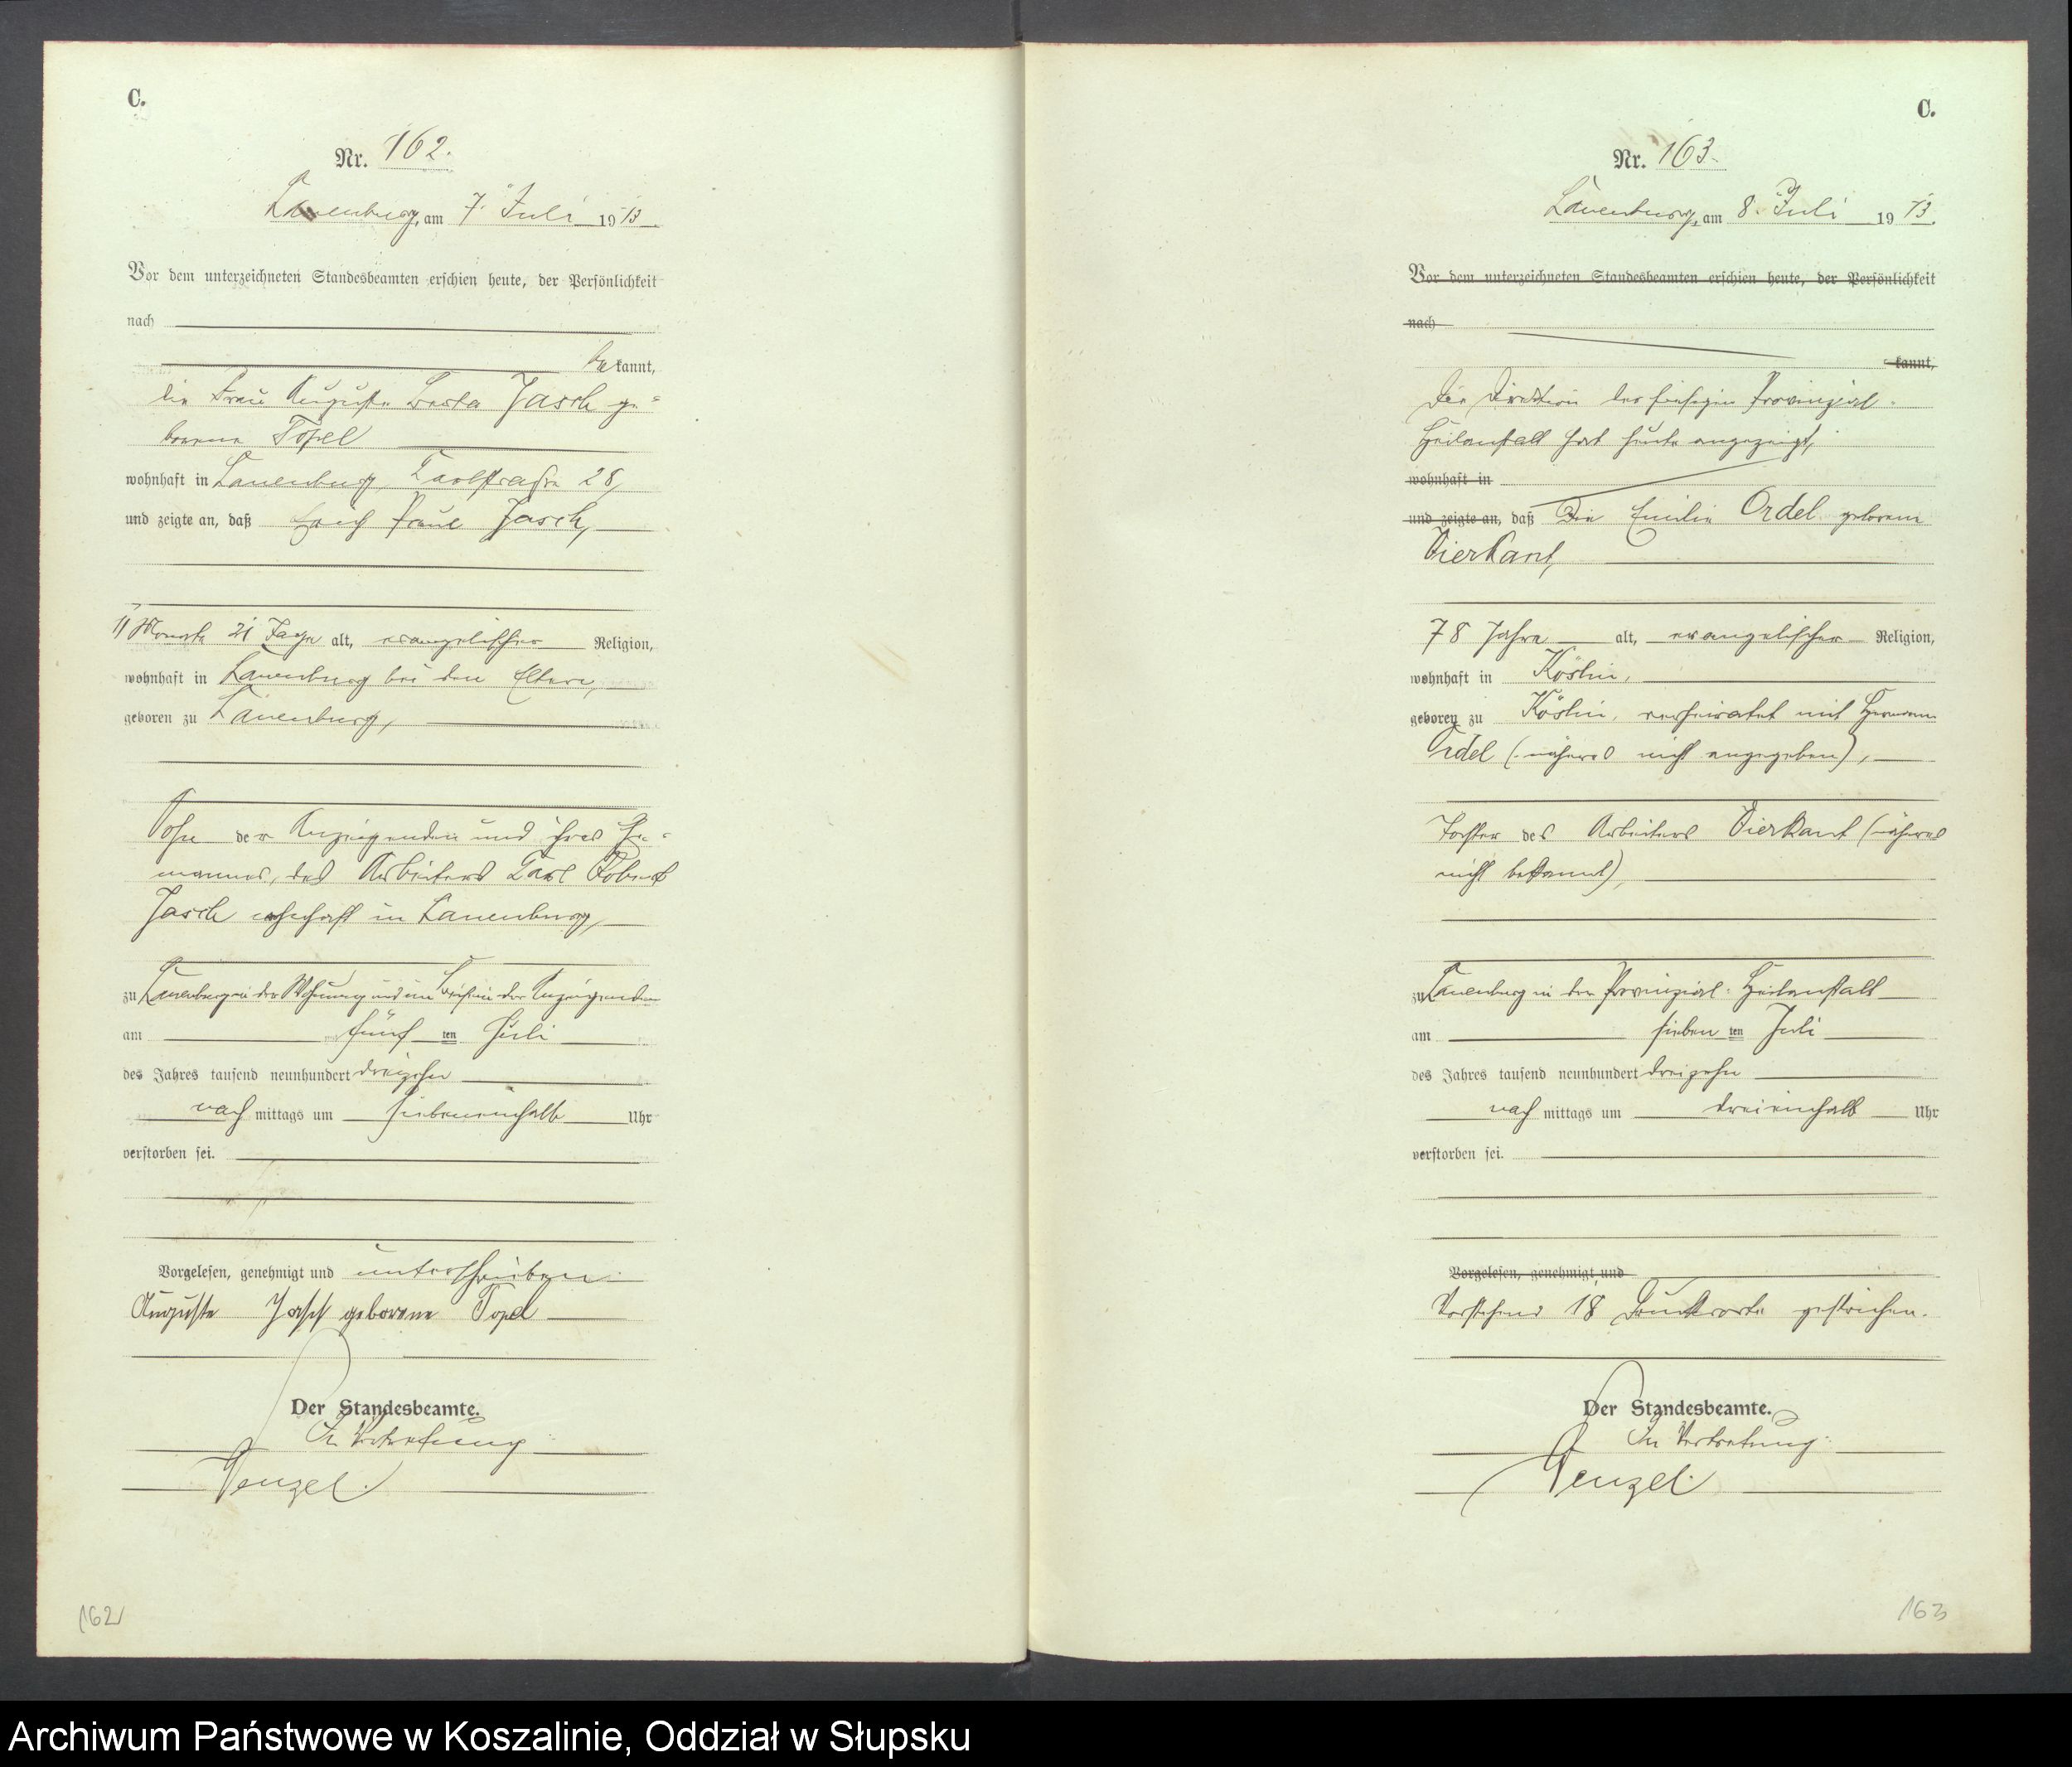 C.
Nr. 162.
Lauenburg, am 7. Juli 1913.
Vor dem unterzeichneten Standesbeamten erschien heute, der Persönlichkeit
nach
be kannt,
die Frau Auguste Berta Jasch ge=
borene Topel
wohnhaft in Lauenburg Carlstraße 28,
und zeigte an, daß Erich Paul Jasch,
11 Monate 21 Tage alt, evangelischer Religion,
wohnhaft in Lauenburg bei den Eltern,
geboren zu Lauenburg,
Sohn der Anzeigenden und ihres Ehe=
mannes, des Arbeiters Carl Robert
Jasch wohnhaft in Lauenburg,
zu Lauenburg in der Wohnung und im Beisein der Anzeigenden
am fünf ten Juli
des Jahres tausend neunhundert dreizehn
nach mittags um siebeneinhalb Uhr
verstorben sei.
Vorgelesen, genehmigt und unterschrieben.
Auguste Jasch geborene Topel
Der Standesbeamte.
In Vertretung
Wenzel.
162
C.
Nr. 163.
Lauenburg, am 8. Juli 1913.
Vor dem unterzeichneten Standesbeamten erschien heute, der Persönlichkeit
nach
kannt,
Die Direktion der hiesigen Provinzial=
Heilanstalt hat heute angezeigt,
wohnhaft in
und zeigte an, daß Die Emilie Ordel geborene
Vierkant,
78 Jahre alt, evangelischer Religion,
wohnhaft in Köslin,
geboren zu Köslin, verheiratet mit Hermann
Ordel (näheres nicht angegeben),
Tochter des Arbeiters Vierkant (näheres
nicht bekannt),
zu Lauenburg in der Provinzial=Heilanstalt
am sieben ten Juli
des Jahres tausend neunhundert dreizehn
nach mittags um dreieinhalb Uhr
verstorben sei.
Vorgelesen, genehmigt und
Vorstehend 18 Druckworte gestrichen.
Der Standesbeamte.
In Vertretung:
Wenzel.
163
Archiwum Państwowe w Koszalinie, Oddział w Słupsku